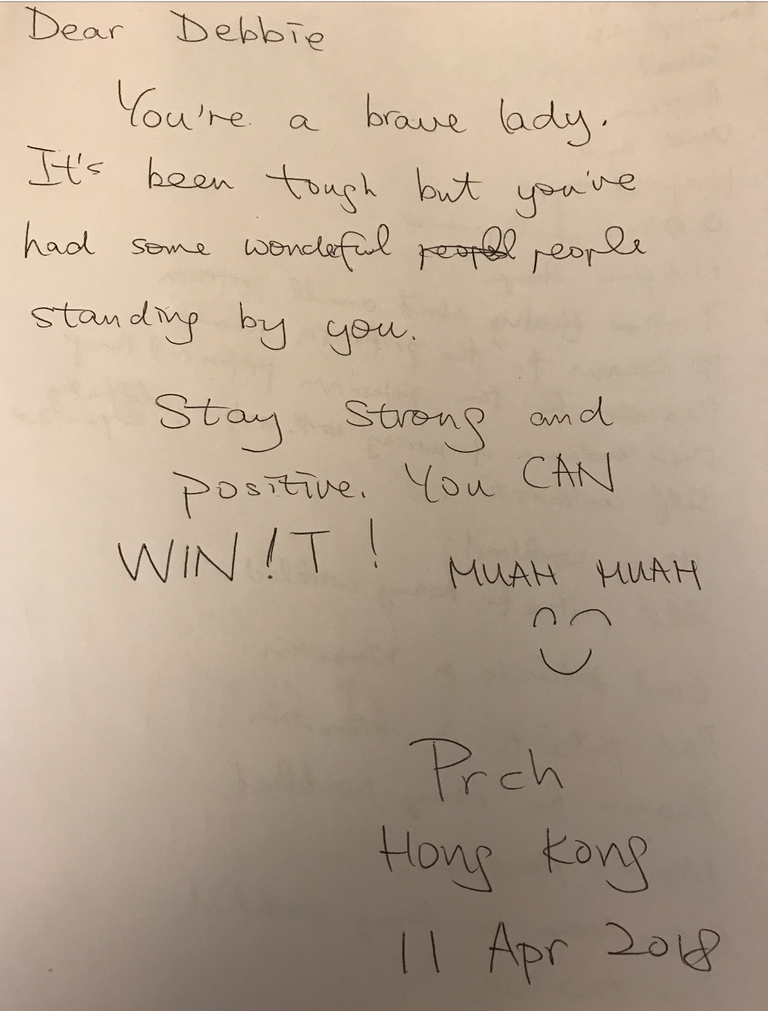 Dear Debbie
You're a brave lady.
It's been tough but you've
had some wondeful people
standing by you.
Stay strong and
positive. You CAN
WIN!T!
MUAH MUAH
Prch
Hong Kong
11 Apr 2018